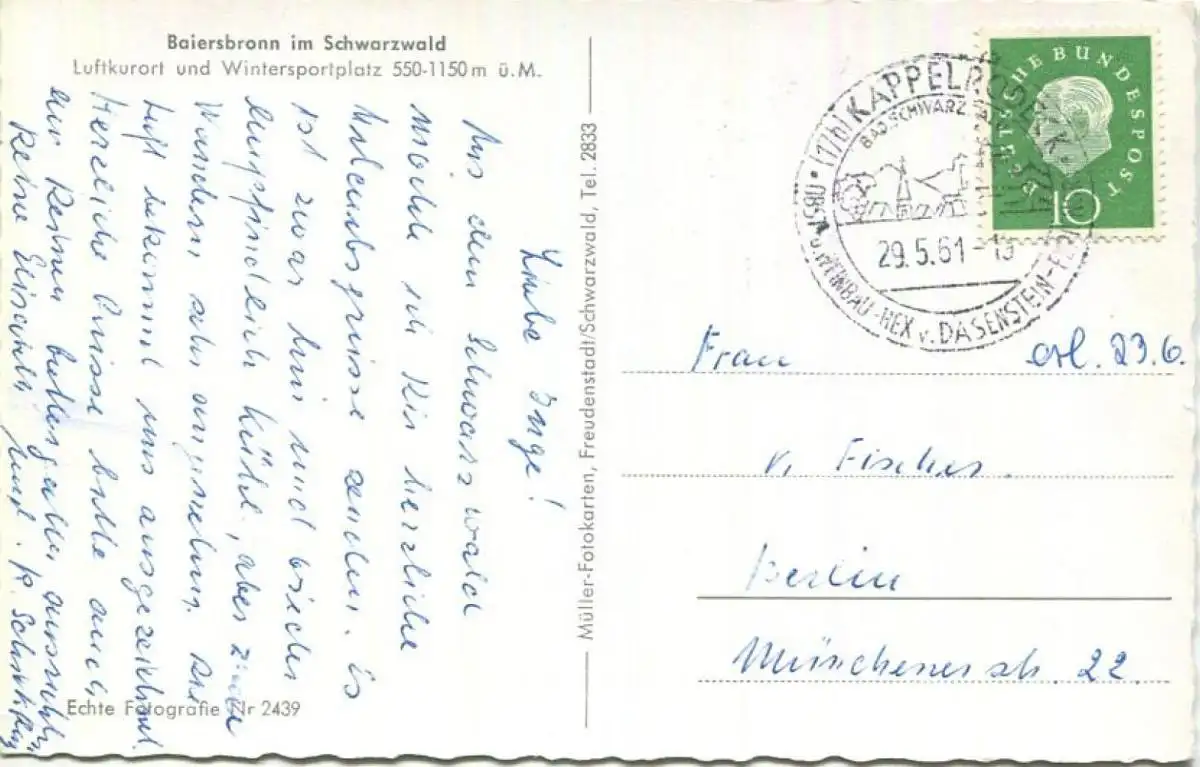 Baiersbronn im Schwarzwald
Luftkurort und Wintersportplatz 550-1150 m ü.M.
Liebe Inge!
Aus dem Schwarzwald
möchte ich Dir herzliche
Urlaubsgrüsse senden. Es
ist zwar hier und bischen
empfindlich kühl, aber zum
Wandern sehr angenehm. Die
Luft bekommt uns ausgezeichnet.
Herzliche Grüsse bitte auch
an Deinen
Deine
Echte Fotografie Nr 2439
Müller-Fotokarten, Freudenstadt/Schwarzwald, Tel. 2833
(17b) KAPPELRODECK
BAD. SCHWARZWALD
29.5.61-13
OBST u. WEINBAU-HEX v. DASENSTEIN
DEUTSCHE BUNDESPOST
10
Frau
erl. 23.6.
v. Fischer.
Berlin
Münchenerstr. 22.